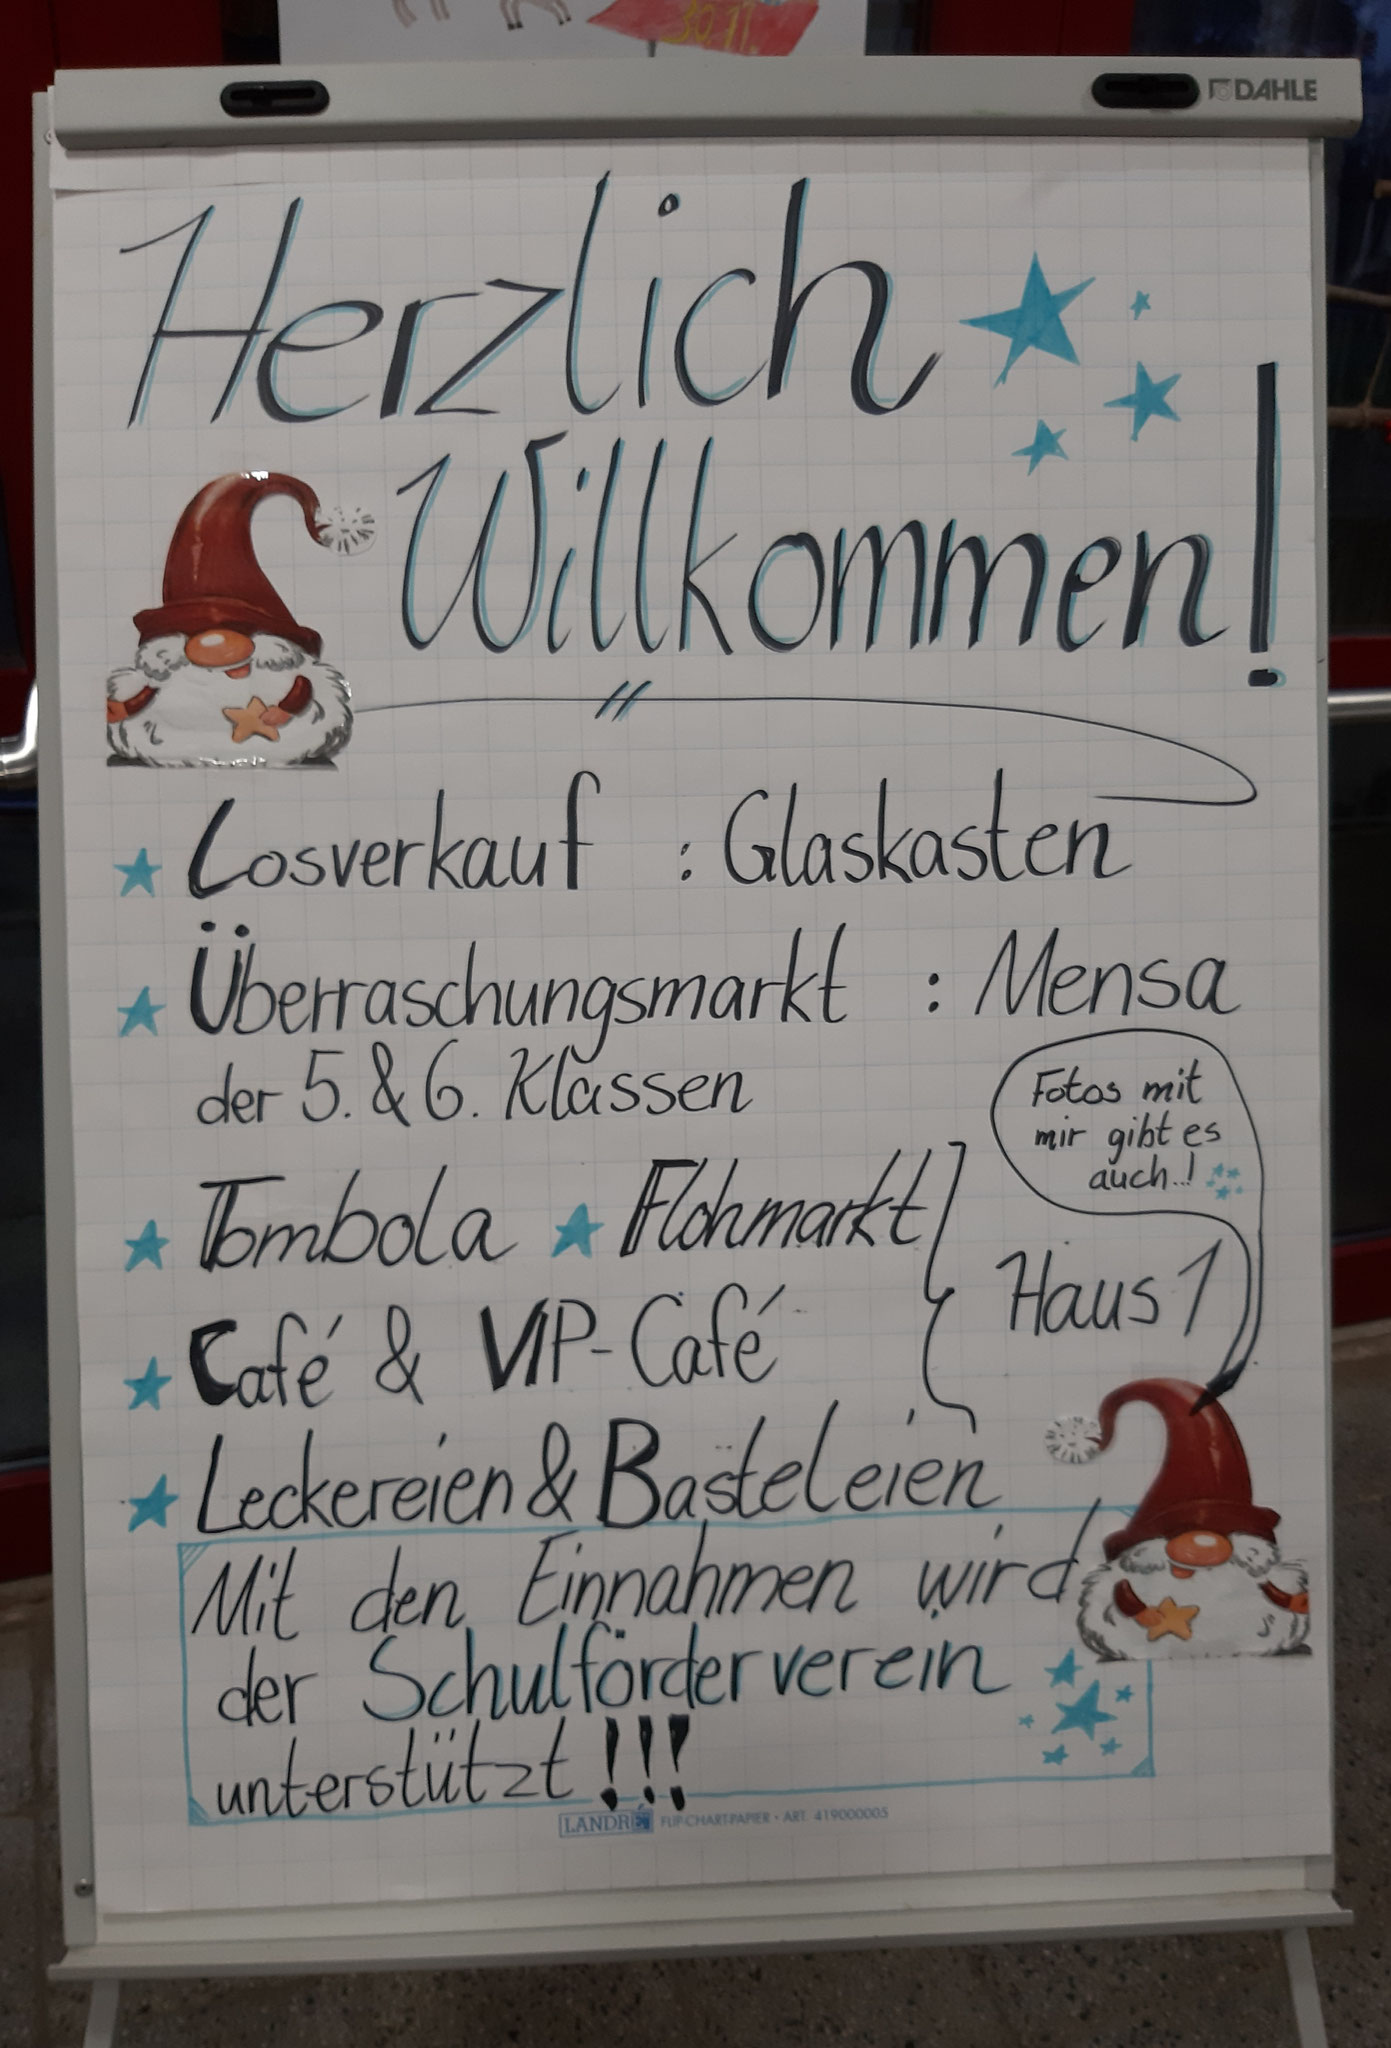 30.11.
DAHLE
Herzlich
Willkommen!
Losverkauf : Glaskasten
Überraschungsmarkt : Mensa
der 5. & 6. Klassen
Fotos mit
mir gibt es
auch..!
Tombola Flohmarkt
Haus 1
Café & VIP-Café
Leckereien & Basteleien
Mit den Einnahmen wird
der Schulförderverein
unterstützt!!!
LANDRÉ FLIP-CHART-PAPIER • ART. 419000005